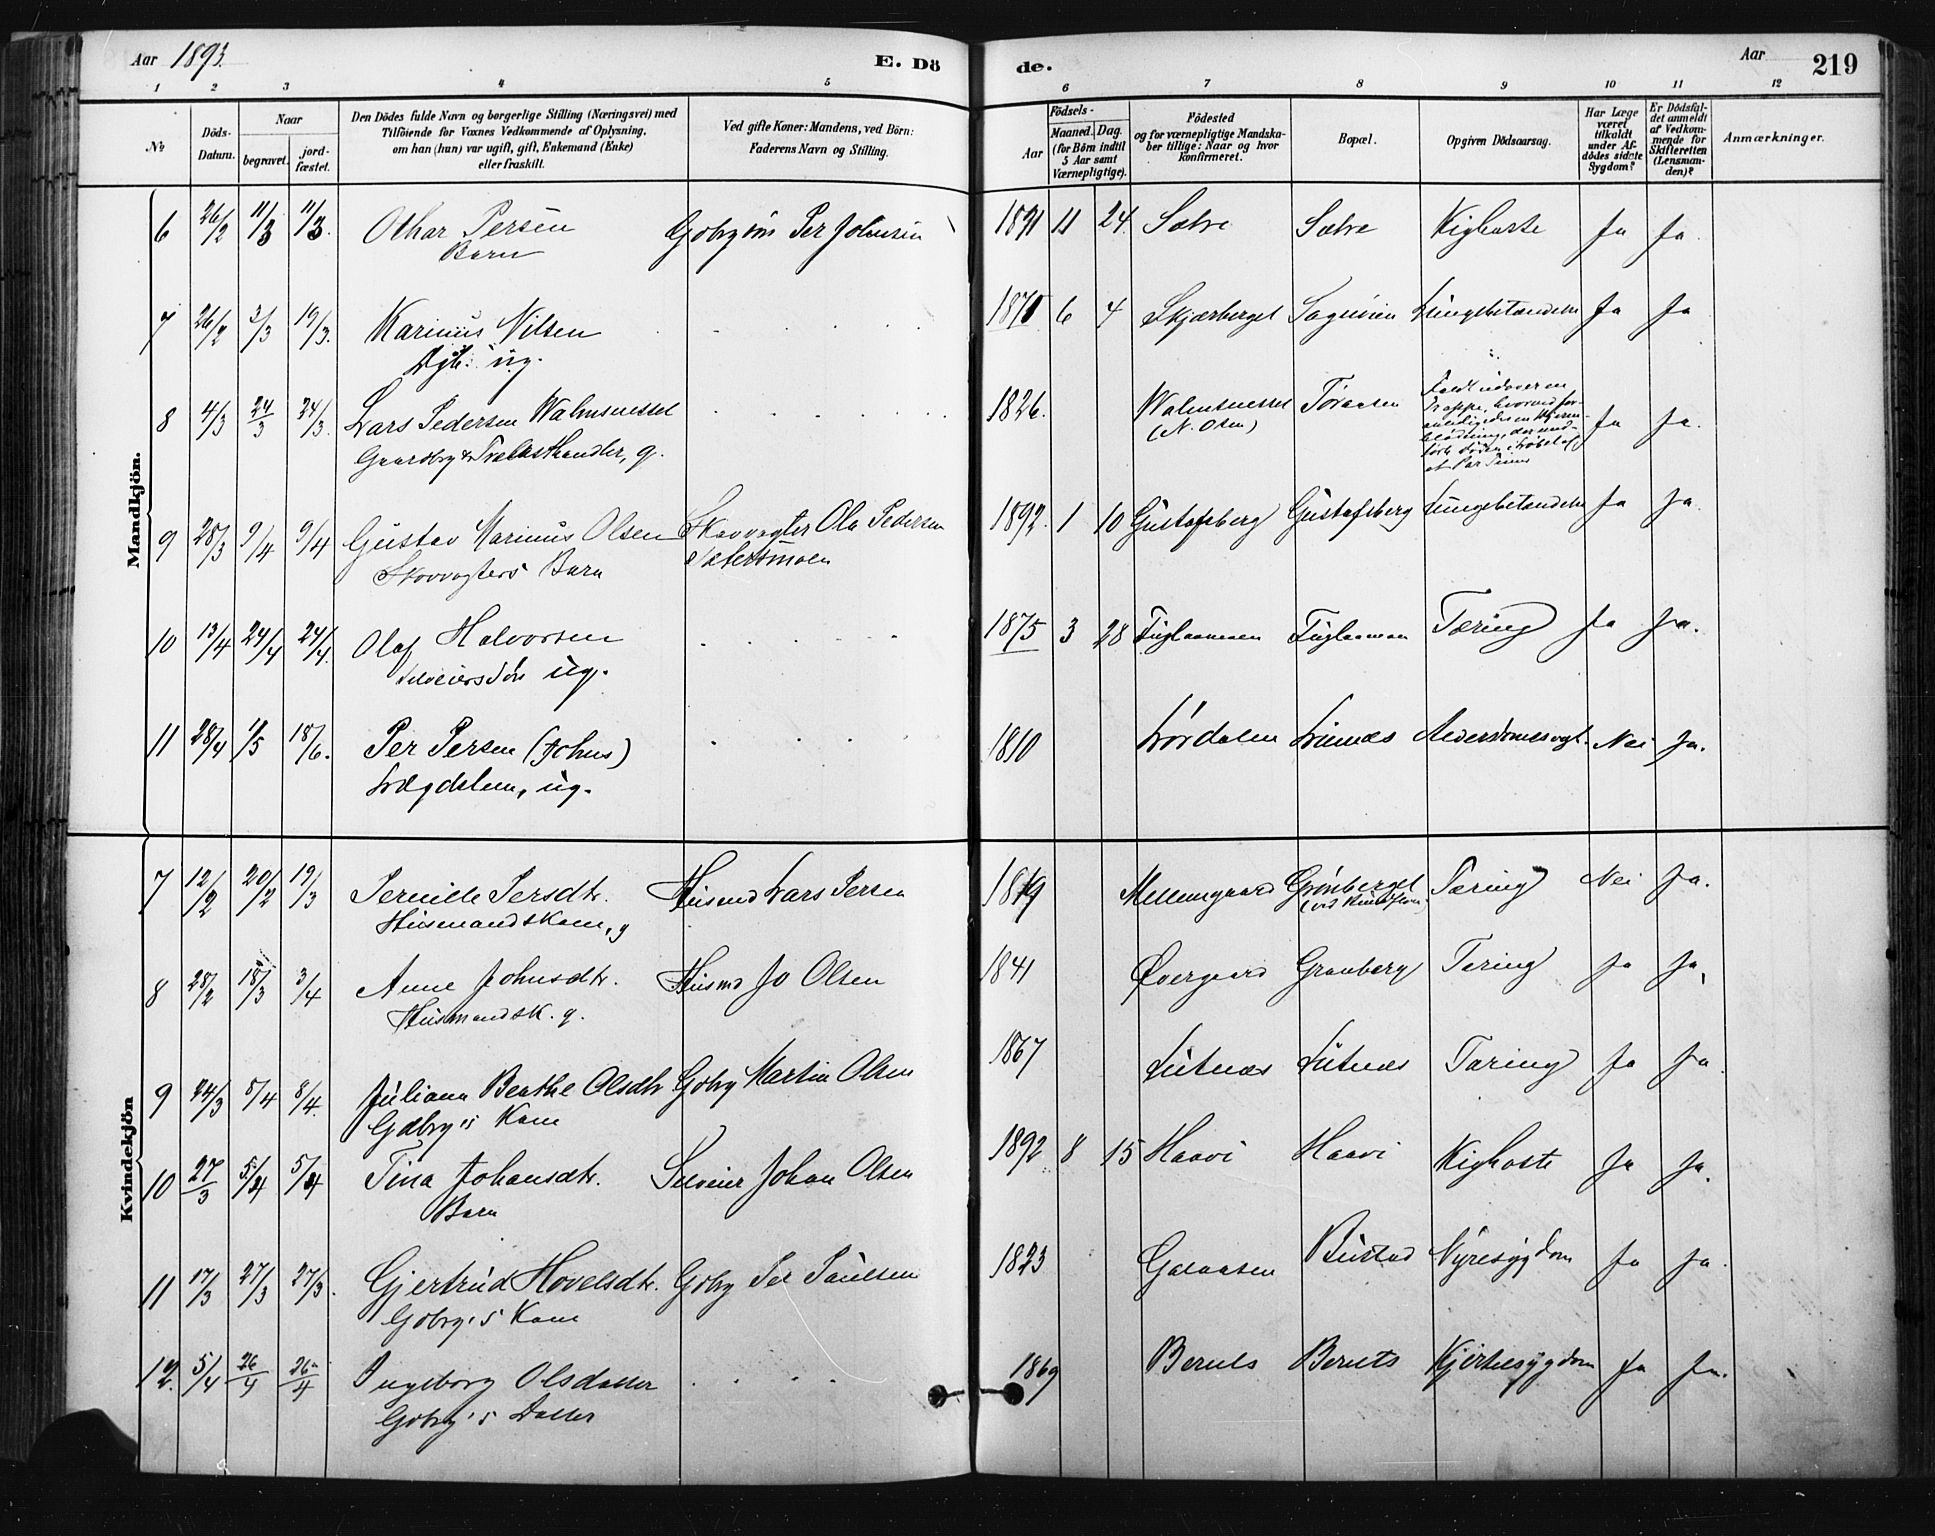 Aar 1893. E. Dö de. Aar 219
1 2 3 4 5 6 7 8 9 10 11 12
No
Döds-Datum.
Naar
begravet.
jord-fæstet.
Den Dödes fulde Navn og borgerlige Stilling (Næringsvei) med
Tilföiende for Voxnes Vedkommende af Oplysning,
om han (hun) var ugift, gift, Enkemand (Enke)
eller fraskilt.
Ved gifte Koner: Mandens, ved Börn:
Faderens Navn og Stilling.
Födsels-
Aar
Maaned. Dag.
(for Börn indtil
5 Aar samt
Værnepligtige).
Födested
og for værnepligtige Mandska-
ber tillige: Naar og hvor
konfirmeret.
Bopæl.
Opgiven Dödsaarsag.
Har Læge
været
tilkaldt
under Af-
dödes sidste
Sygdom?
Er Dödsfal-
det anmeldt
af Vedkom-
mende for
Skifteretten
(Lensman-
den)?
Anmærkninger.
Mandkjön.
6 26/2 11/3 11/3. Othar Persen Gbrugeni Per Johnsen 1891 11 24 Sætre Sætre Kighoste Ja Ja.
Barn
7 26/2 3/3 19/3. Karinius Nilsen 1871 6 4 Skjærberget Lungebetændelse Ja Ja
ug.
8 4/3 24/3 24/3. Lars Pedersen Walmsnesset 1826. Walmsnesset Töraasen Ja Ja.
Gaardbr & Trælasthandler, g. (N. Osen)
Faldt udover en
Trappe, hvorved for-
9 28/3 9/4 9/4 Gustav Marinus Olsen Skovvogter Ola Pedersen 1892. 1 10 Gustafsberg Gustafsberg Lungebetændelse Ja Ja.
Skovvogters Barn Sætersmoen
10 13/4 24/4 24/4. Olaf Halvorsen 1875 3 28 Fuglaamoen Fuglaamoen Tæring Ja Ja.
Selveiersdön ug.
11 28/4 11/5 18/6. Per Persen (Johns) 1810 Lördalen Linnæs Alderdomssvagh. Nei Ja.
Lægdslem, ug.
Kvindekjön
7 12/2 20/2 19/3 Pernille Persdtr. Husmd Lars Persen 1819 Mellemgaard Grönberget Tæring Nei Ja.
Husmandskone, g
8 28/2 18/3 3/4 Anne Johnsdtr. Husmd Jo Olsen 1841 Övergaard Granberg Tæring Ja Ja.
Husmandsk. g.
9 24/3 8/4 8/4. Juliana Berthe Olsdtr Gbrg Martin Olsen 1867 Lutnæs Lutnæs Tæring Ja Ja.
Gdbrg's Kone
10 27/3 5/4 5/4 Tina Johansdtr. Selveier Johan Olsen 1892 8 15 Haavi Haavi Kighoste Ja Ja.
Barn
11 17/3 27/3 27/3. Gjertrud Hovelsdtr. Gbrg Per Paulsen 1823 Galaasen Burstad Nyresygdom Ja Ja.
Gbrg's Kone
12. 5/4 26/4 26/4 Ingeborg Olsdatter 1869 Berults Berults Hjertesygdom Ja Ja.
Gbrg's Datter